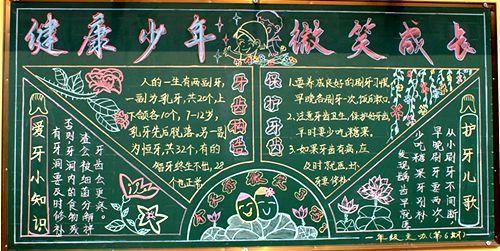 健康少年
微笑成长
牙齿档案
人的一生有两副牙,
一副为乳牙,共20个,上
下颌各10个,7-12岁,
乳牙先后脱落,另一副
为恒牙,共32个,有的
智牙终生不出,28
个也正常
保护牙齿
1.要养成良好的刷牙习惯,
早晚各刷牙一次,饭后漱口。
2.注意牙齿卫生,保护好牙齿,
平时要少吃糖果。
3.如果牙齿有病,应
及时就医,
爱牙小知识
牙齿出
渣会被细菌分解种
否则牙洞内的食物残
有牙洞要及时修补
护牙儿歌
从小刷牙不间断
早晚刷牙要两次
少吃糖果牙别补
发现龋齿早就医
一年级主办(第6期)